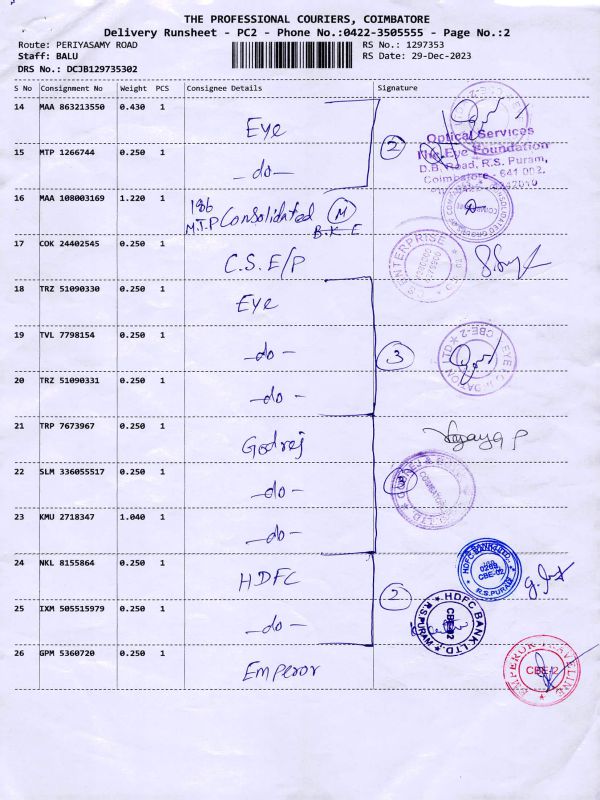 THE PROFESSIONAL COURIERS, COIMBATORE
Delivery Runsheet - PC2 - Phone No.:0422-3505555 - Page No.:2
Route: PERIYASAMY ROAD RS No.: 1297353
Staff: BALU RS Date: 29-Dec-2023
DRS No.: DCJB129735302
S No Consignment No Weight PCS Consignee Details Signature
14 MAA 863213550 0.430 1 Eye
Optical Services
Eye Foundation
D.B. Road, R.S. Puram,
Coimbatore - 641 002.
15 MTP 1266744 0.250 1 -do- 2
16 MAA 108003169 1.220 1 186
M.T.P Consolidated M
B.K.E
17 COK 24402545 0.250 1 C.S.E/P
ENTERPRISE
18 TRZ 51090330 0.250 1 Eye
19 TVL 7798154 0.250 1 -do- 3
CBE-2
20 TRZ 51090331 0.250 1 -do-
21 TRP 7673967 0.250 1 Godrej
22 SLM 336055517 0.250 1 -do- 3
COIMBATORE
23 KMU 2718347 1.040 1 -do-
24 NKL 8155864 0.250 1 HDFC
HDFC BANK LTD.
0269
CBE-02
R.S.PURAM
25 IXM 505515979 0.250 1 -do- 2
HDFC BANK LTD.
CBE-02
R.S.PURAM
26 GPM 5360720 0.250 1 Emperor
EMPEROR TRAVELINE
CBE-2